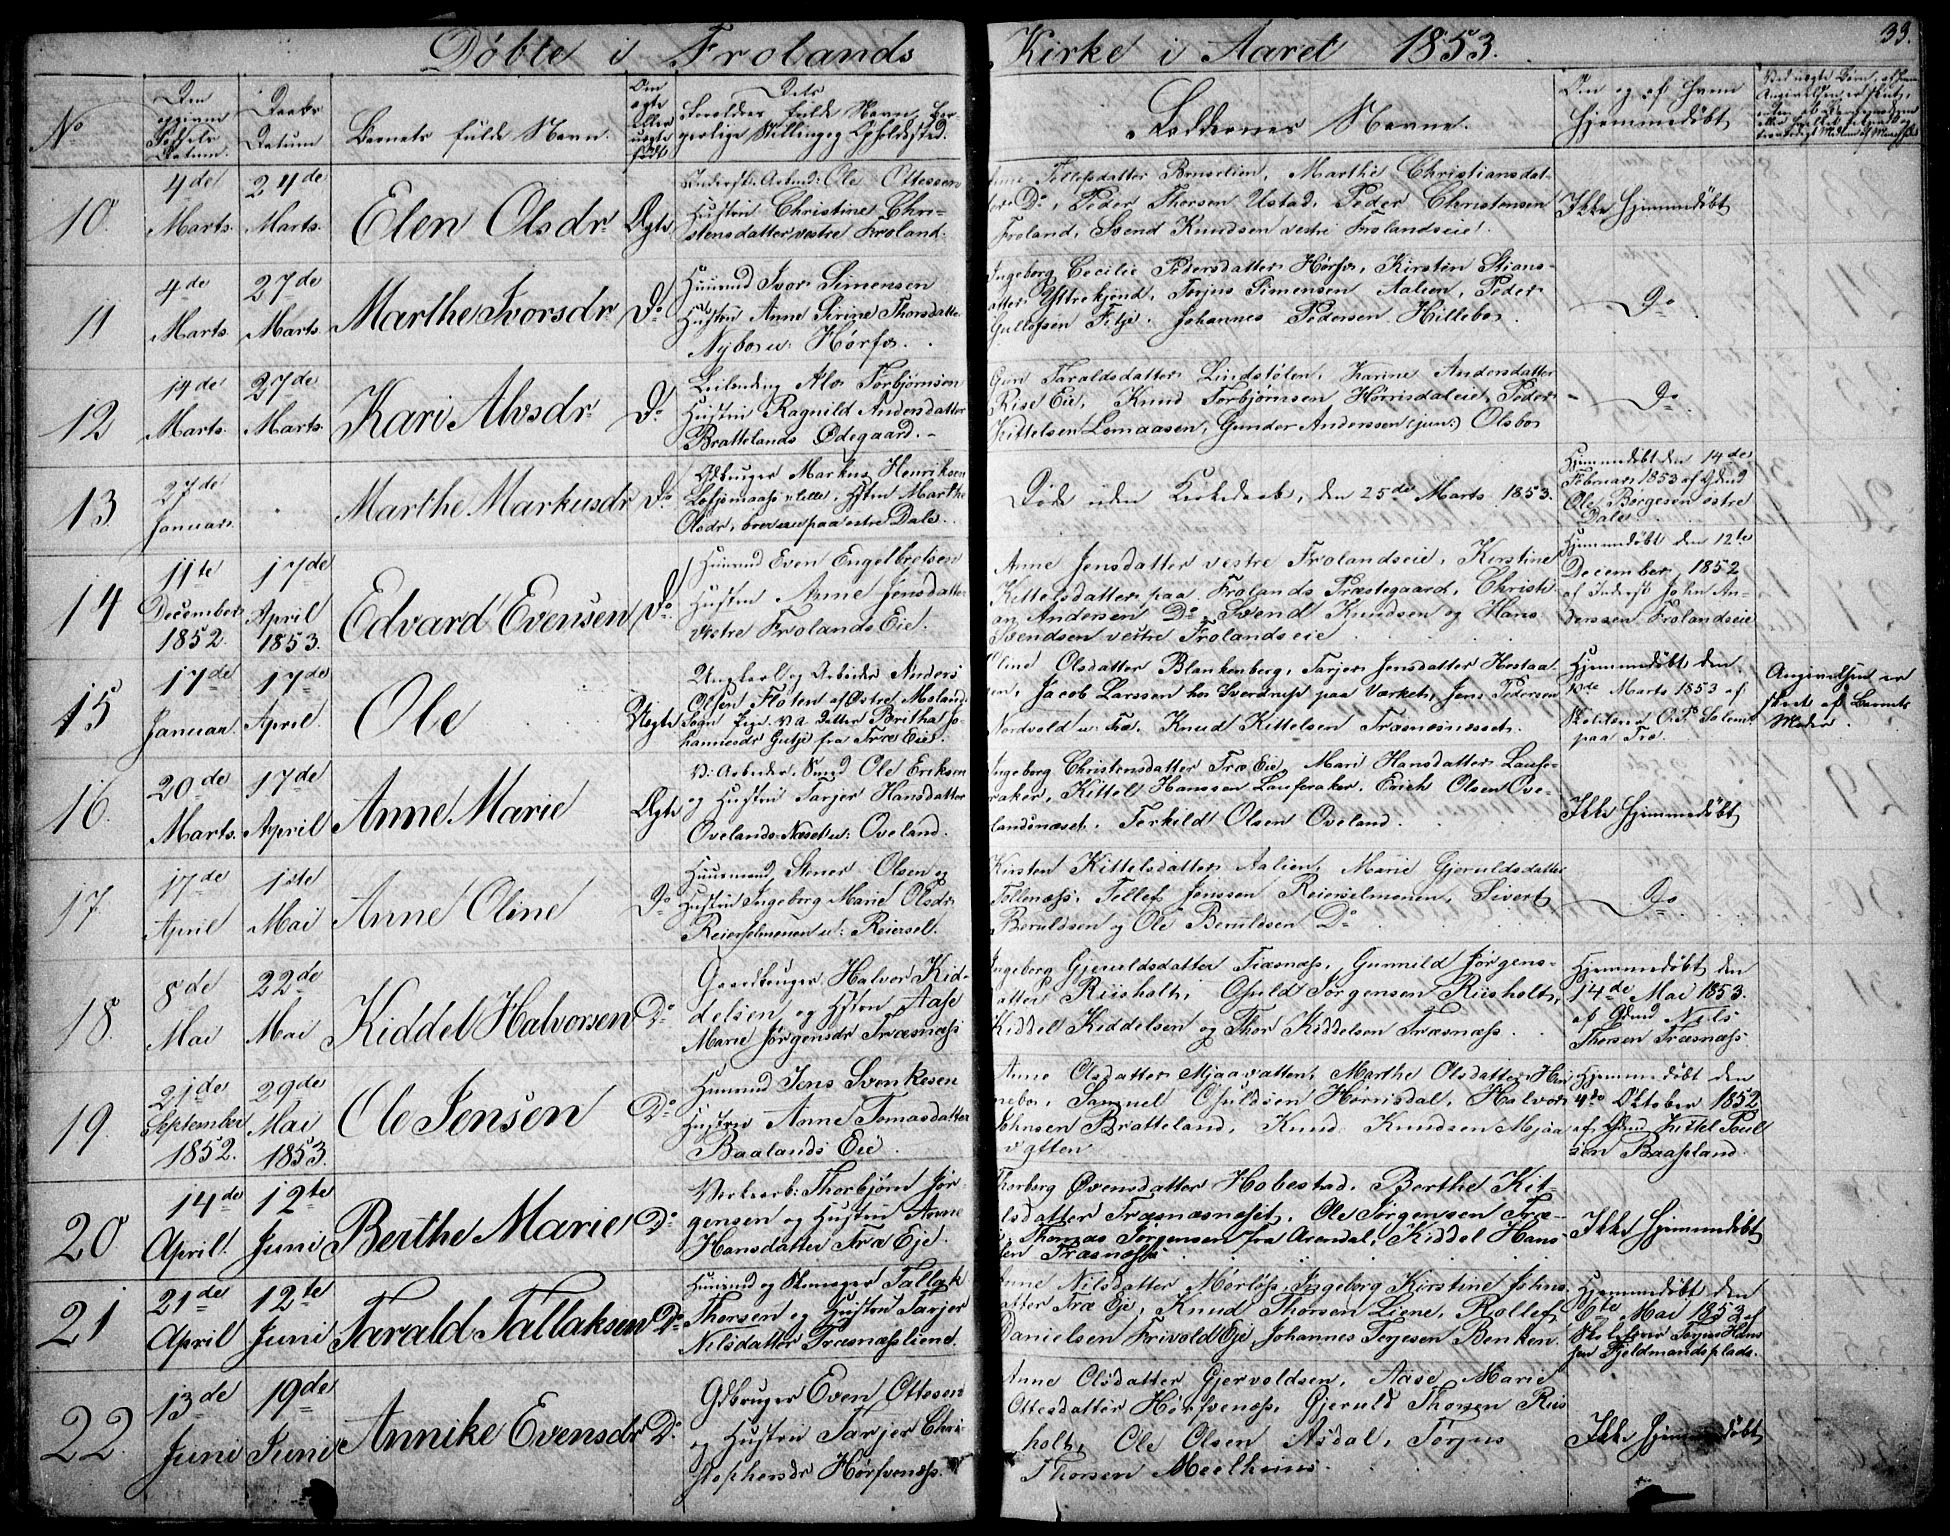 Døbte i Frolands Kirke i Aaret 1853.
33.
No
Den opgivne Fødsels Datum.
Daabs Datum
Barnets fulde Navn.
Om ægte eller uægte født
Forældres fulde Navn, Borgerlige Stilling og Opholdssted.
Faddernes Navne.
Om og af hvem Hjemmedøbt
10.
4de Marts.
24de Marts.
Elen Olsdr
Ægte
Ole Ottessen
Hustru Christine Chri-
stensdatter vestre Froland.
Tellefsdatter Bruselien, Marthe Christiansdat-
ter Do, Peder Thorsen Ustad, Peder Christensen
Froland, Svend Knudsen vestre Frolandseie.
Ikke Hjemmedøbt
11
4de Marts
27de Marts
Marthe Ivorsdr
Do
Huusmd Ivor Simensen
Hustru Anne Sirine Thorsdatter
Nyboe u: Hørfos.
Ingeborg Cecilie Pedersdatter Hørfos, Kirsten Stians-
datter Yttrekjend, Torjus Simensen Aalien, Peder
Gullofsen Fitje, Johannes Pedersen Hillebo.
Do
12
14de Marts.
27de Marts.
Kari Alvsdr
Do
Leilending Alv Torbjørnsen
Hustru Ragnild Andersdatter
Brattelands Ødegaard.
Guri Taraldsdatter Lindstølen, Karine Andersdatter
Rise Eie, Knud Torbjørnsen Hørrisdaleie, Peder
Kittelsen Lomaasen, Gunder Anderssen (jun:) Olsbo
Do
13
27de Januar.
Marthe Markusdr
Do
Gdbruger Markus Henriksen
Marthe
Olsdr, paa østre Dale.
Døde uden Kirkedaab, den 25de Marts 1853.
Hjemmedøbt den 14de
Februar 1853 af Gdmd
Ole Børgesen østre
Dale
14
11te December 1852.
17de April 1853.
Edvard Evensen
Do
Huusmd Even Engelbretsen
Hustru Anne Jensdatter
vestre Frolands Eie.
Anne Jensdatter vestre Frolandseie, Kirstine
Kittelsdatter paa Frolands Præstegaard, Christi-
an Andersen Do, Svend Knudsen og Hans
Svendsen vestre Frolandseie
Hjemmedøbt den 12te
December 1852
af Inderst John An-
derssen Frolandseie
15
17de Januar
17de April.
Ole
Uægte
Ungkarl og Arbeider Anders
Olsen Floten af Østre Moland
Sogn Pige. Datter Berthe Jo-
hannesdr Gutje fra Træ Eie.
Oline Olsdatter Blankenberg, Tarjer Jensdatter Hestaa-
sen, Jacob Larssen hos Sverdrup paa Værket, Jens Pedersen
Nordvold u: Træ, Knud Kittelsen Træsnæsnesset.
Hjemmedøbt den
Marts 1853 af
paa Træ.
Angivelsen er
skeet af Barnets
Moder.
16.
20de Marts.
17de April
Anne Marie
Ægte
V: Arbeider, Smed Ole Eriksen
og Hustru Tarjer Hansdatter
Ovelands Næset u: Oveland.
Ingeborg Christensdatter Træ Eie, Mari Hansdatter Laufe-
raker, Kittel Hanssen Lauferaker, Erich Olsen Ove-
landsnæset, Terkild Olsen Oveland.
Ikke Hjemmedøbt
17.
17de April
1ste Mai
Anne Oline
Do
Huusmand Stener Olsen og
Hustru Ingeborg Marie Olsdr
Reierselmonen u: Reiersel.
Kirsten Kittelsdatter Aalien, Marie Gjeruldsdatter
Follenæss, Tellef Jenssen Reierselmonen, Sivert
Beruldsen og Ole Beruldsen Do
Do
18.
8de Mai
22de Mai
Kiddel Halvorsen
Do
Gaardbruger Halvor Kid-
delsen og Hstru Aase
Marie Jørgensdr Træsnæss
Ingeborg Gjeruldsdatter Træsnæss, Gunnild Jørgens-
datter Riisholt, Osuld Jørgensen Riisholt,
Kiddel Kiddelsen og Thor Kiddelsen Træsnæss.
Hjemmedøbt den
14de Mai 1853.
af Gdmd Nils
Thorsen Træsnæss
19.
21de September 1852.
29de Mai 1853.
Ole Jensen
Do
Huusmd Jens Svenkesen
Hustru Anne Tomasdatter
Baalands Eie.
Anne Olsdatter Mjaavatten, Marthe Olsdatter Hin-
nebo, Samuel Osuldsen Hørrisdal, Halvor
Johnsen Bratteland, Knud Knudsen Mjaa-
vatten
Hjemmedøbt den
4de Oktober 1852
af Gdmd Kittel Poul-
sen Baaseland.
20
14de April.
12te Juni
Berthe Marie
Do
Verksarb: Thorbjørn Jør-
gensen og Hustru Anne
Hansdatter Træ Eje.
Thorborg Øvensdatter Hobestad, Berthe Kit-
elsdatter Træsnæsnæset, Ole Jørgensen Træ-
Thomas Jørgensen fra Arendal, Kiddel Hans-
sen Træsnæss
Ikke Hjemmedøbt
21
21de April
12te Juni
Tarald Tallaksen
Do
Huusmd og Tallak
Thorsen og Hustru Tarjer
Nilsdatter Træsnæssliene.
Anne Nilsdatter Mørløs, Ingeborg Kirstine Johns-
datter Træ Eje, Knud Thorsen Liene, Rollef
Danielsen Frivold Eje, Johannes Terjesen Benken.
Hjemmedøbt den
6te Mai 1853 af
Skolelærer Torjus Hans-
sen Fjeldmandsplads.
22.
13de Juni
19de Juni
Annike Evensdr
Do
Gdbruger Even Ottesen
og Hustru Tarjer Chri-
stophersdr Hørfvenæss.
Anne Olsdatter Gjervoldsen, Aase Marie
Ottesdatter Hørfvenæss, Gjeruld Thorsen Riis-
holt, Ole Olsen Asdal, Torjus
Thorsen Mielhuus.
Ikke Hjemmedøbt